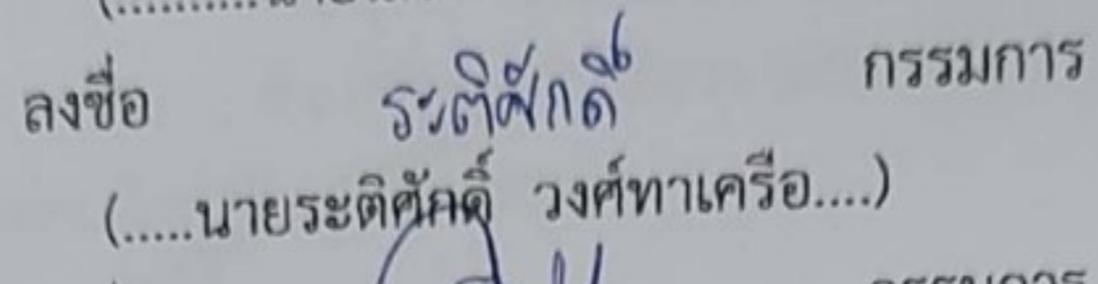 ลงชื่อ ระติศักดิ์ กรรมการ
(.....นายระติศักดิ์ วงศ์ทาเครือ....)
กรรมการ